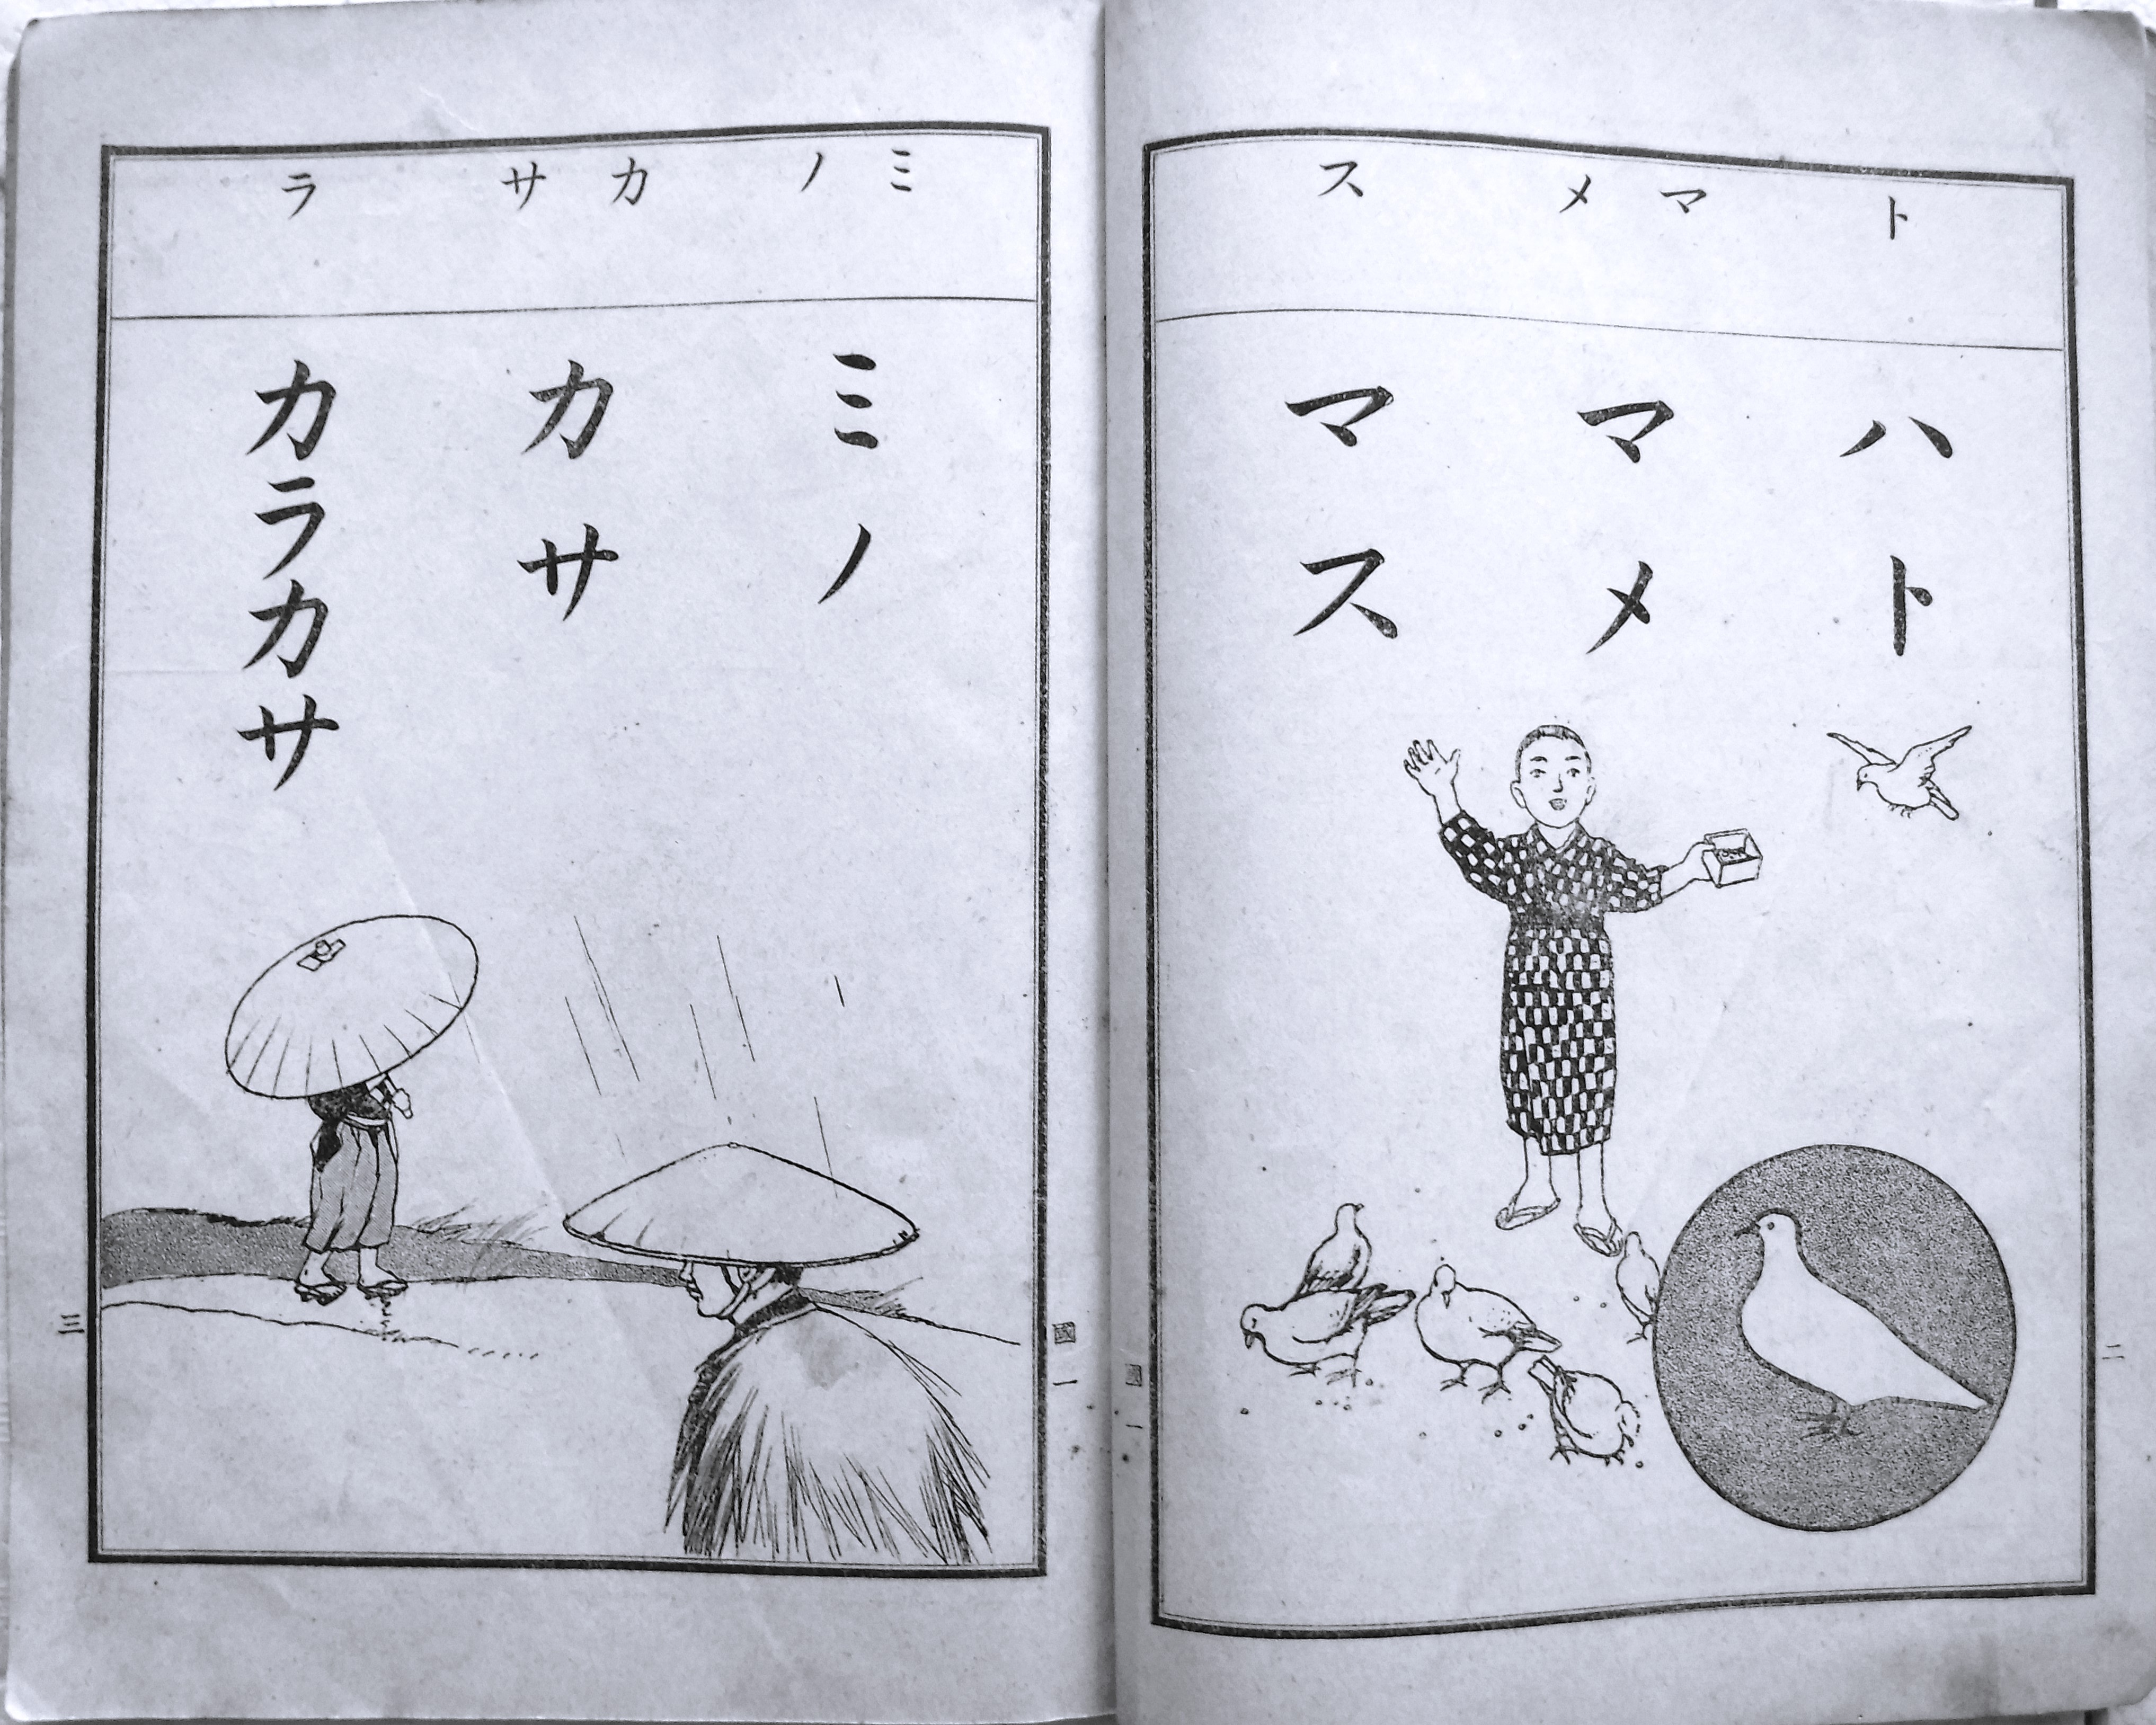 ト
マ メ
ス
ハト
マメ
マス
二
國 一
ミ ノ
カ サ
ラ
ミノ
カサ
カラカサ
三
國 一